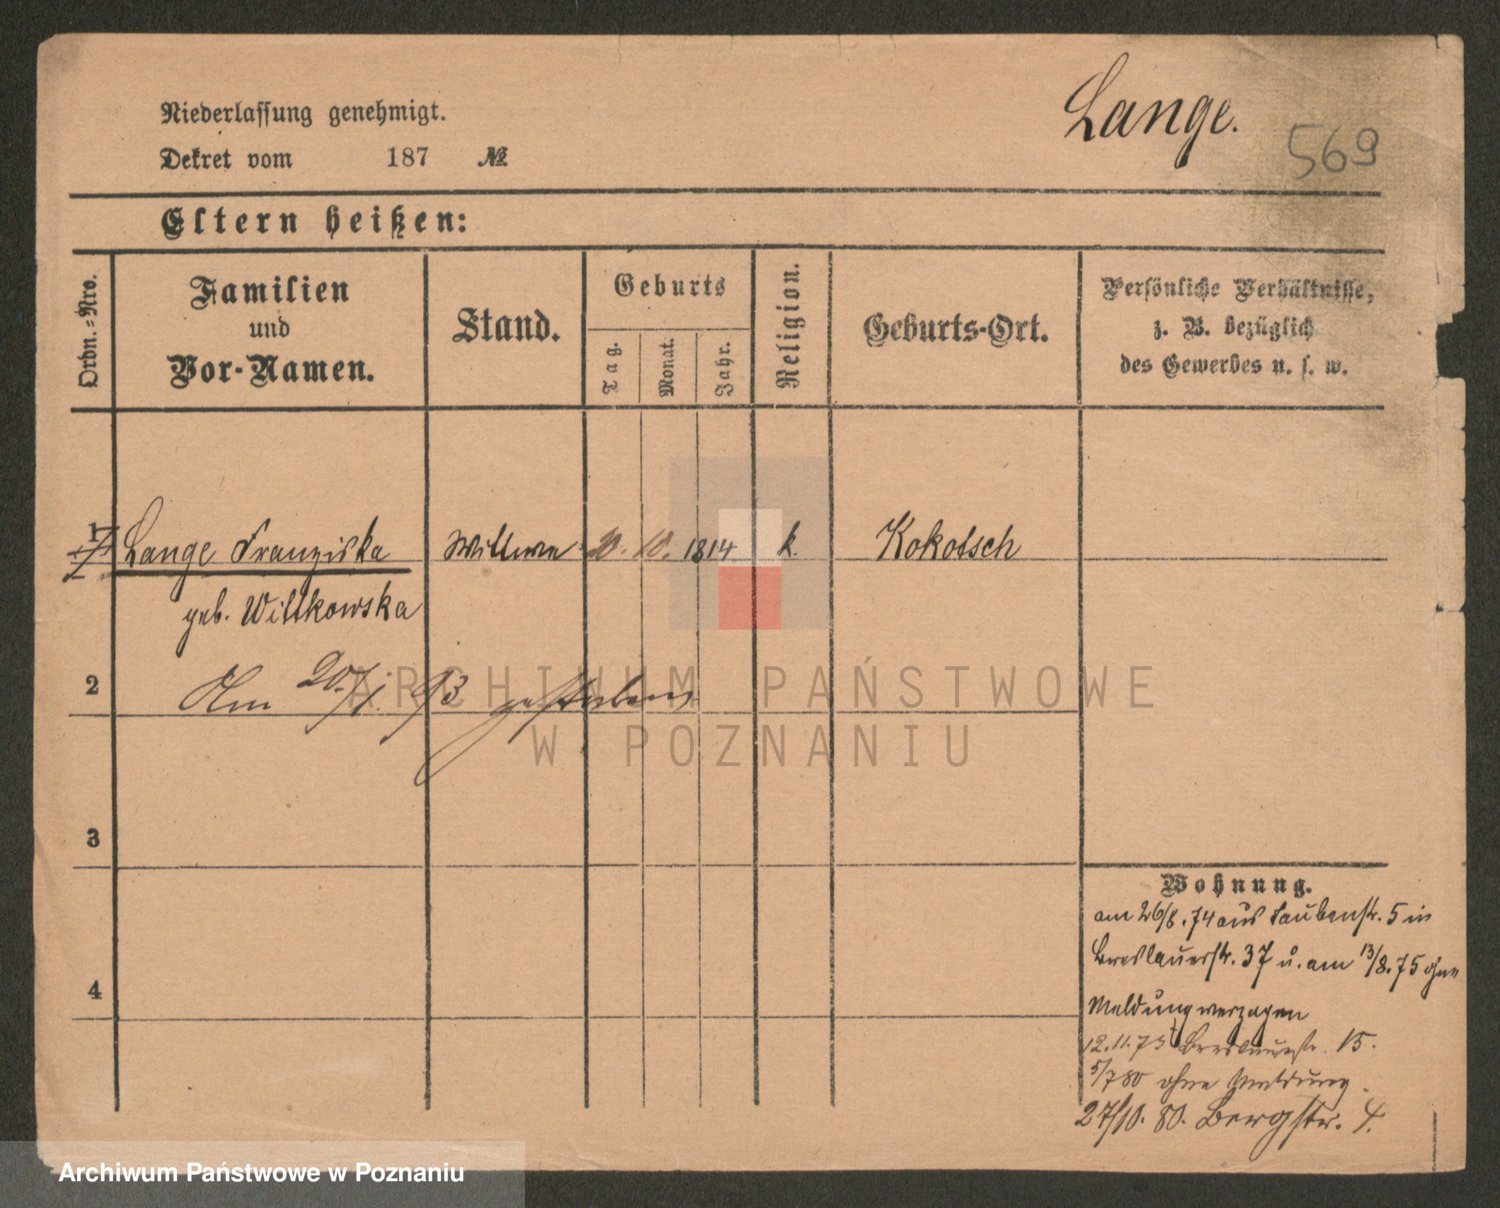 Niederlassung genehmigt.
Dekret vom 187 №
Lange.
569
Eltern heißen:
Ordn.-Nro.
Familien
und
Vor-Namen.
Stand.
Geburts
Tag.
Monat.
Jahr.
Religion.
Geburts-Ort.
Persönliche Verhältnisse,
z. B. bezüglich
des Gewerbes u. s. w.
1 Lange Franziska Wittwe 10. 1814. k. Kokotsch
geb. Wittkowska
2 Am 20/1. 93 gestorben
3
4
Wohnung.
am 26/8. 74 aus Taubenstr. 5 in
Breslauerstr. 37 u. am 13/8. 75 ohne
Meldung verzogen
12.11.75 Breslauerstr. 15.
5/7 80 ohne Meldung.
27/10. 80. Bergstr. 4.
ARCHIWUM PAŃSTWOWE
W POZNANIU
Archiwum Państwowe w Poznaniu